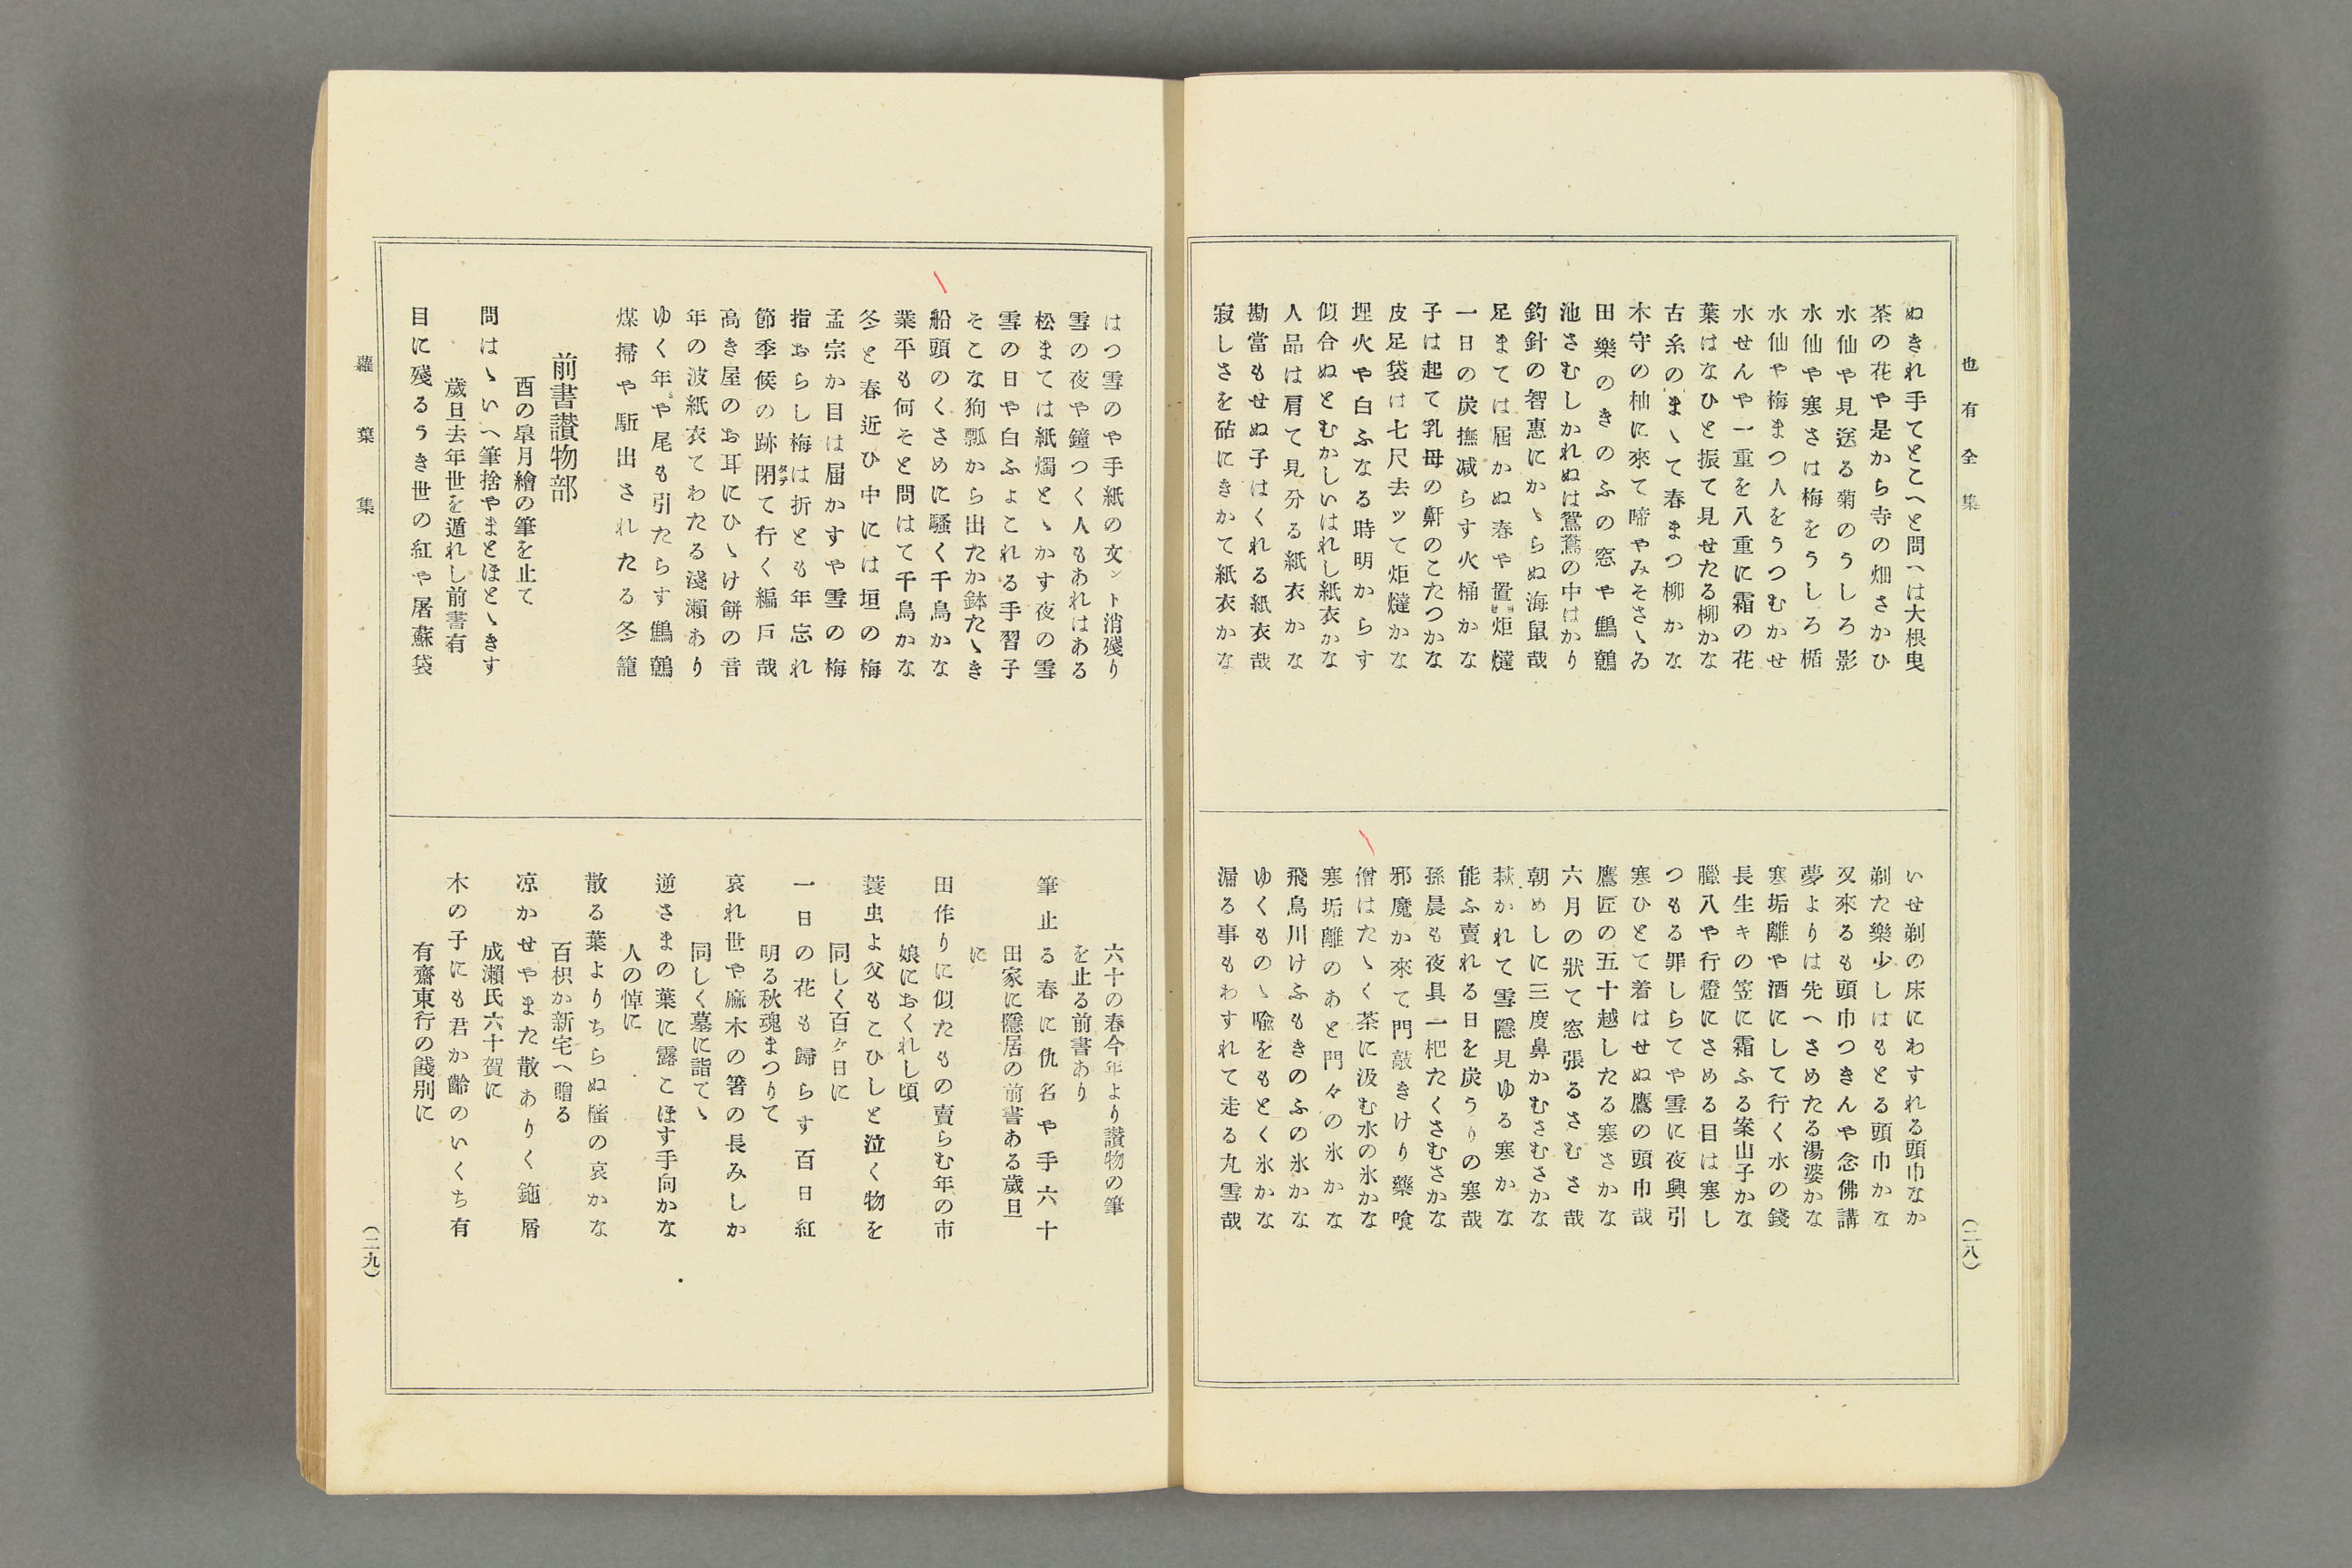 也有全集
(二八)
ぬきれ手てとこへと問へは大根曳
茶の花や是から寺の畑さかひ
水仙や見送る菊のうしろ影
水仙や寒さは梅をうしろ楯
水仙や梅まつ人をうつむかせ
水せんや一重を八重に霜の花
葉はなひと振て見せたる柳かな
古糸のまゝて春まつ柳かな
木守の柚に來て啼やみそさゝゐ
田樂のきのふの窓や鷦鷯
池さむしかれぬは鴛鴦の中はかり
釣針の智惠にかゝらぬ海鼠哉
足まては屆かぬ春や置炬燵
一日の炭撫减らす火桶かな
子は起て乳母の鼾のこたつかな
皮足袋は七尺去ッて炬燵かな
埋火や白ふなる時明からす
似合ぬとむかしいはれし紙衣かな
人品は肩て見分る紙衣かな
勘當もせぬ子はくれる紙衣哉
寂しさを砧にきかて紙衣かな
いせ剃の床にわすれる頭巾なか
剃た樂少しはもとる頭巾かな
又來るも頭巾つきんや念佛講
夢よりは先へさめたる湯婆かな
寒垢離や酒にして行く水の錢
長生キの笠に霜ふる案山子かな
臘八や行燈にさめる目は寒し
つもる罪しらてや雪に夜興引
寒ひとて着はせぬ鷹の頭巾哉
鷹匠の五十越したる寒さかな
六月の狀て窓張るさむさ哉
朝めしに三度鼻かむさむさかな
萩かれて雪隱見ゆる寒かな
能ふ賣れる日を炭うりの寒哉
孫晨も夜具一杷たくさむさかな
邪魔か來て門敲きけり藥喰
僧はたゝく茶に汲む水の氷かな
寒垢離のあと門々の氷かな
飛鳥川けふもきのふの氷かな
ゆくものゝ喩をもとく氷かな
漏る事もわすれて走る丸雪哉
はつ雪のや手紙の文ント消殘り
雪の夜や鐘つく人もあれはある
松まては紙燭とゝかす夜の雪
雪の日や白ふよこれる手習子
そこな狗瓢から出たか鉢たゝき
船頭のくさめに騷く千鳥かな
業平も何そと問はて千鳥かな
冬と春近ひ中には垣の梅
孟宗か目は屆かすや雪の梅
指おらし梅は折とも年忘れ
節季候の跡閉タテて行く編戸哉
高き屋のお耳にひゝけ餅の音
年の波紙衣てわたる淺瀬あり
ゆく年や尾も引たらす鷦鷯
煤掃や駈出されたる冬籠
前書讃物部
酉の皐月繪の筆を止て
問はゝいへ筆捨やまとほとゝきす
歲旦去年世を遁れし前書有
目に殘るうき世の紅や屠蘇袋
六十の春今年より讃物の筆
を止る前書あり
筆止る春に仇名や手六十
田家に隱居の前書ある歲旦
に
田作りに似たもの賣らむ年の市
娘におくれし頃
蓑虫よ父もこひしと泣く物を
同しく百ケ日に
一日の花も歸らす百日紅
明る秋魂まつりて
哀れ世や麻木の箸の長みしか
同しく墓に詣てゝ
逆さまの葉に露こほす手向かな
人の悼に
散る葉よりちらぬ樒の哀かな
百枳か新宅へ贈る
凉かせやまた散ありく鉋屑
成瀨氏六十賀に
木の子にも君か齡のいくち有
有齋東行の餞別に
蘿葉集
(二九)